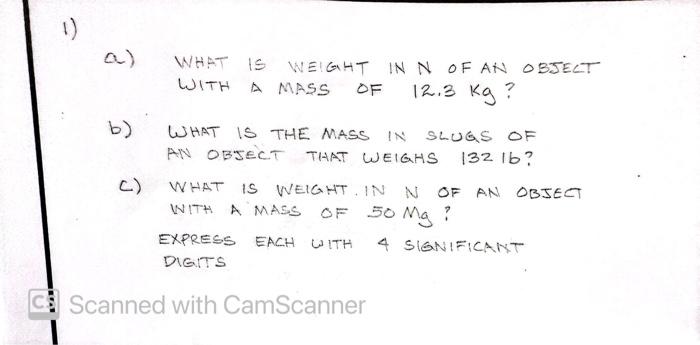 1)
a) WHAT IS WEIGHT IN N OF AN OBJECT
WITH A MASS OF 12.3 Kg ?
b) WHAT IS THE MASS IN SLUGS OF
AN OBJECT THAT WEIGHS 132 lb?
c) WHAT IS WEIGHT. IN N OF AN OBJECT
WITH A MASS OF 50 Mg ?
EXPRESS EACH WITH 4 SIGNIFICANT
DIGITS
CS Scanned with CamScanner